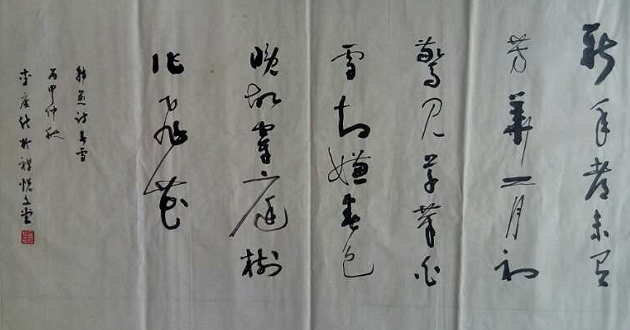 新年都未有
芳華二月初
驚見草芽白
雪却嫌春色
晚故穿庭樹
作飛花
韓愈詩春雪
丙申仲秋
於禅悦堂